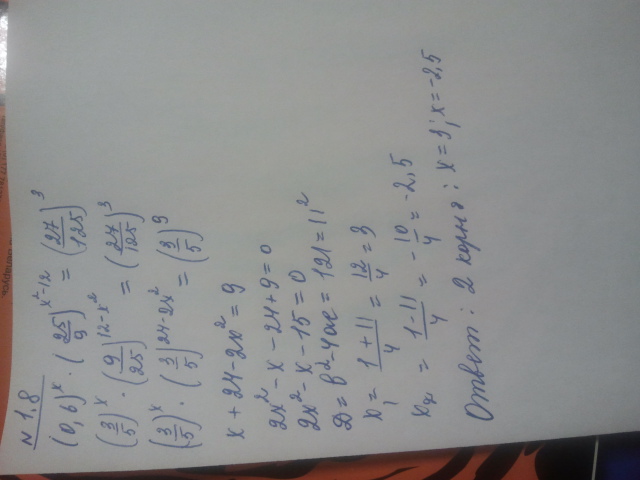 N 1.8
(0,6)^x · (25/9)^{x²-12} = (27/125)^3
(3/5)^x · (9/25)^{12-x²} = (27/125)^3
(3/5)^x · (3/5)^{24-2x²} = (3/5)^9
x + 24 - 2x² = 9
2x² - x - 24 + 9 = 0
2x² - x - 15 = 0
D = b² - 4ac = 121 = 11²
x₁ = (1 + 11)/4 = 12/4 = 3
x₂ = (1 - 11)/4 = -10/4 = -2,5
Ответ: 2 корня: x = 3; x = -2,5